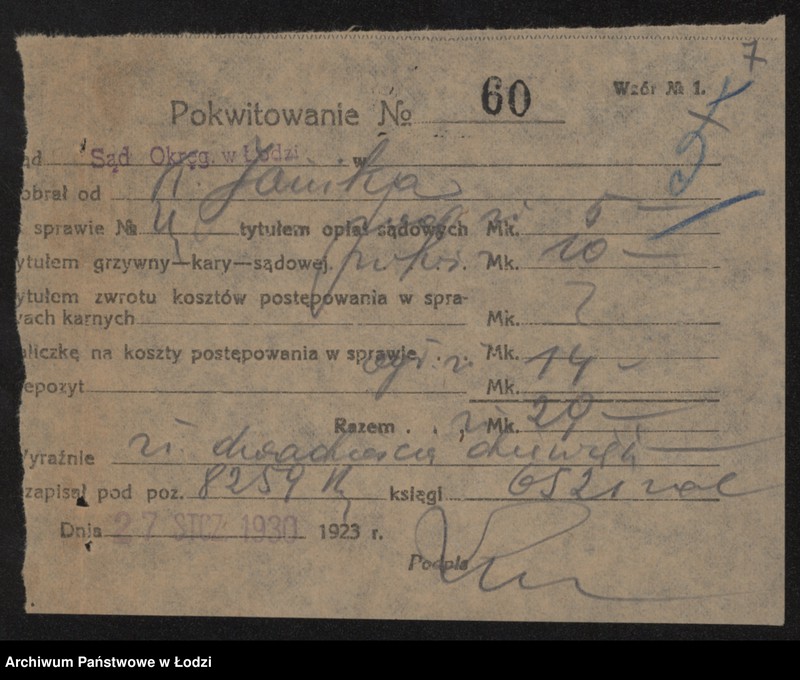 7
Wzór № 1.
Pokwitowanie № 60
ąd Sąd Okręg. w Łodzi w
obrał od
sprawie № tytułem opłat sądowych Mk. 5 —
ytułem grzywny—kary—sądowej . . . Mk. 10 —
ytułem zwrotu kosztów postępowania w spra-
vach karnych Mk.
aliczkę na koszty postępowania w sprawie . . . Mk. 14 —
epozyt Mk.
Razem . . , zł Mk. 29 —
yraźnie zł. dwadzieścia dziewięć
zapisał pod poz. 8259 księgi
Dnia 27 STCZ 1930 1923 r.
Podpis
Archiwum Państwowe w Łodzi